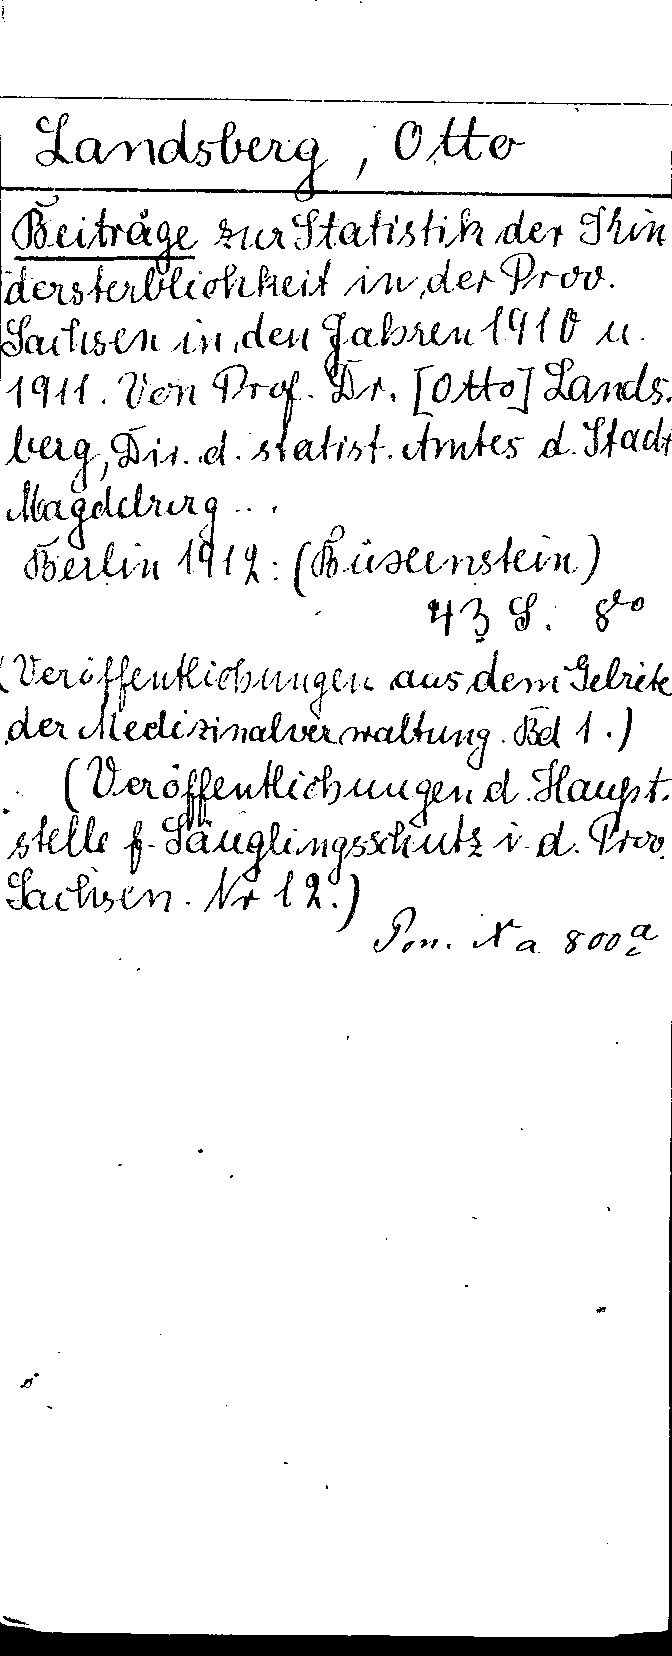 Landsberg, Otto
Beiträge zur Statistik der Kin
dersterblichkeit in der Prov.
Sachsen in den Jahren 1910 u.
1911. Von Prof. Dr. [Otto] Lands-
berg, Dir. d. statist. Amtes d. Stadt
Magdeburg ...
Berlin 1912: (Büxenstein)
43 S. 8°
(Veröffentlichungen aus dem Gebiete
der Medizinalverwaltung. Bd 1.)
(Veröffentlichungen d. Haupt-
stelle f. Säuglingsschutz i. d. Prov.
Sachsen. Nr 12.)
Pon. Xa 800 a